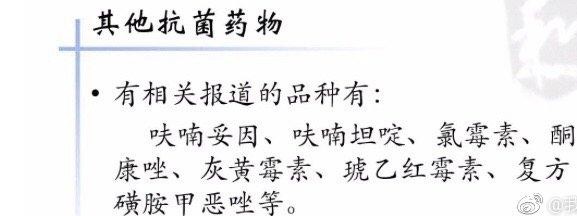 其他抗菌药物
• 有相关报道的品种有:
呋喃妥因、呋喃坦啶、氯霉素、酮
康唑、灰黄霉素、琥乙红霉素、复方
磺胺甲恶唑等。
@我